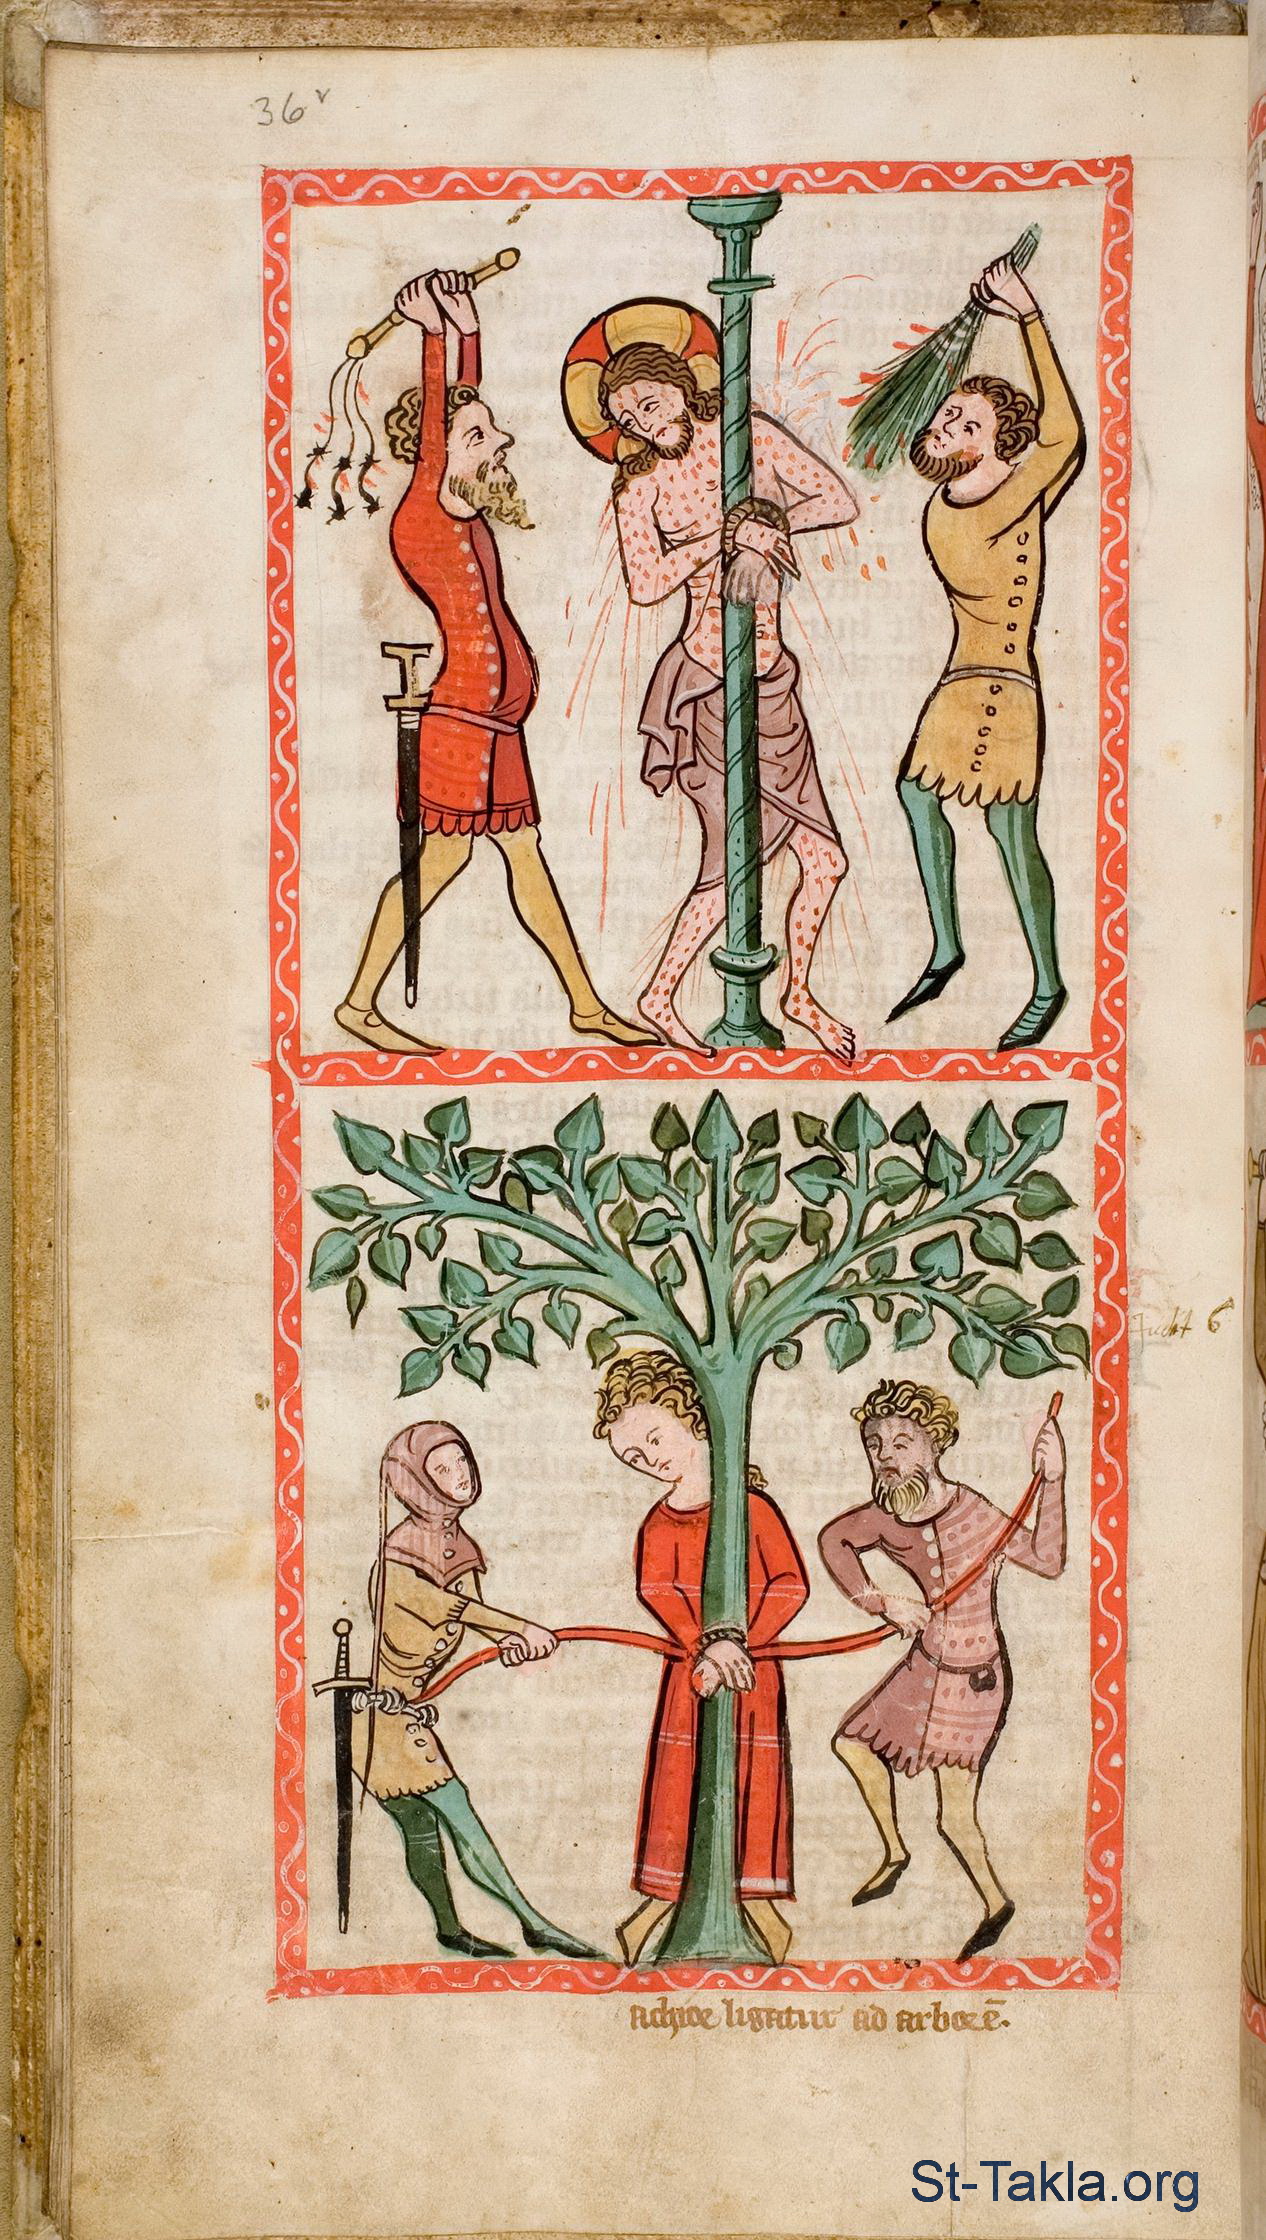 36v
Judit 6
achior ligatur ad arborē.
St-Takla.org